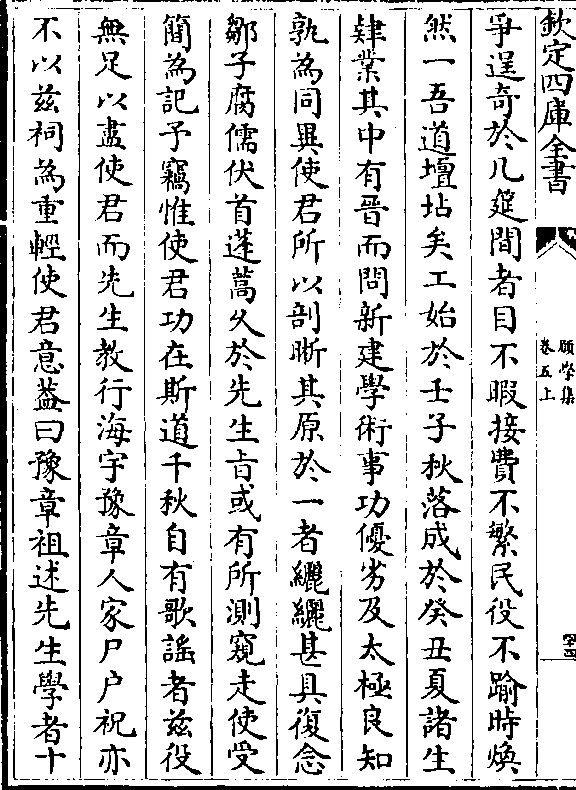 欽定四庫全書
願學集
卷五上
爭逞奇於几筵間者目不暇接費不繁民役不踰時煥
然一吾道壇坫矣工始於壬子秋落成於癸丑夏諸生
肄業其中有晉而問新建學術事功優劣及太極良知
孰為同異使君所以剖晰其原於一者纚纚甚具復念
鄒子腐儒伏首蓬蒿久於先生㫖或有所測窺走使受
簡為記予竊惟使君功在斯道千秋自有歌謡者兹役
無足以盡使君而先生教行海宇豫章人家尸户祝亦
不以兹祠為重輕使君意葢曰豫章祖述先生學者十